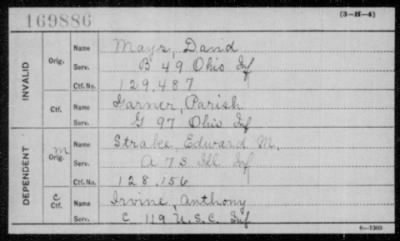 169886
(3-H-4)
INVALID
Orig. Name Mayr, David
Serv. B 49 Ohio Inf
Ctf. No. 129.487
Ctf. Name Garner, Parish
Serv. G 97 Ohio Inf
DEPENDENT
M Orig. Name Strake, Edward M.
Serv. A 73 Ill Inf
Ctf. No. 128.156
C Ctf. Name Irvine, Anthony
Serv. C 119 U.S.C. Inf